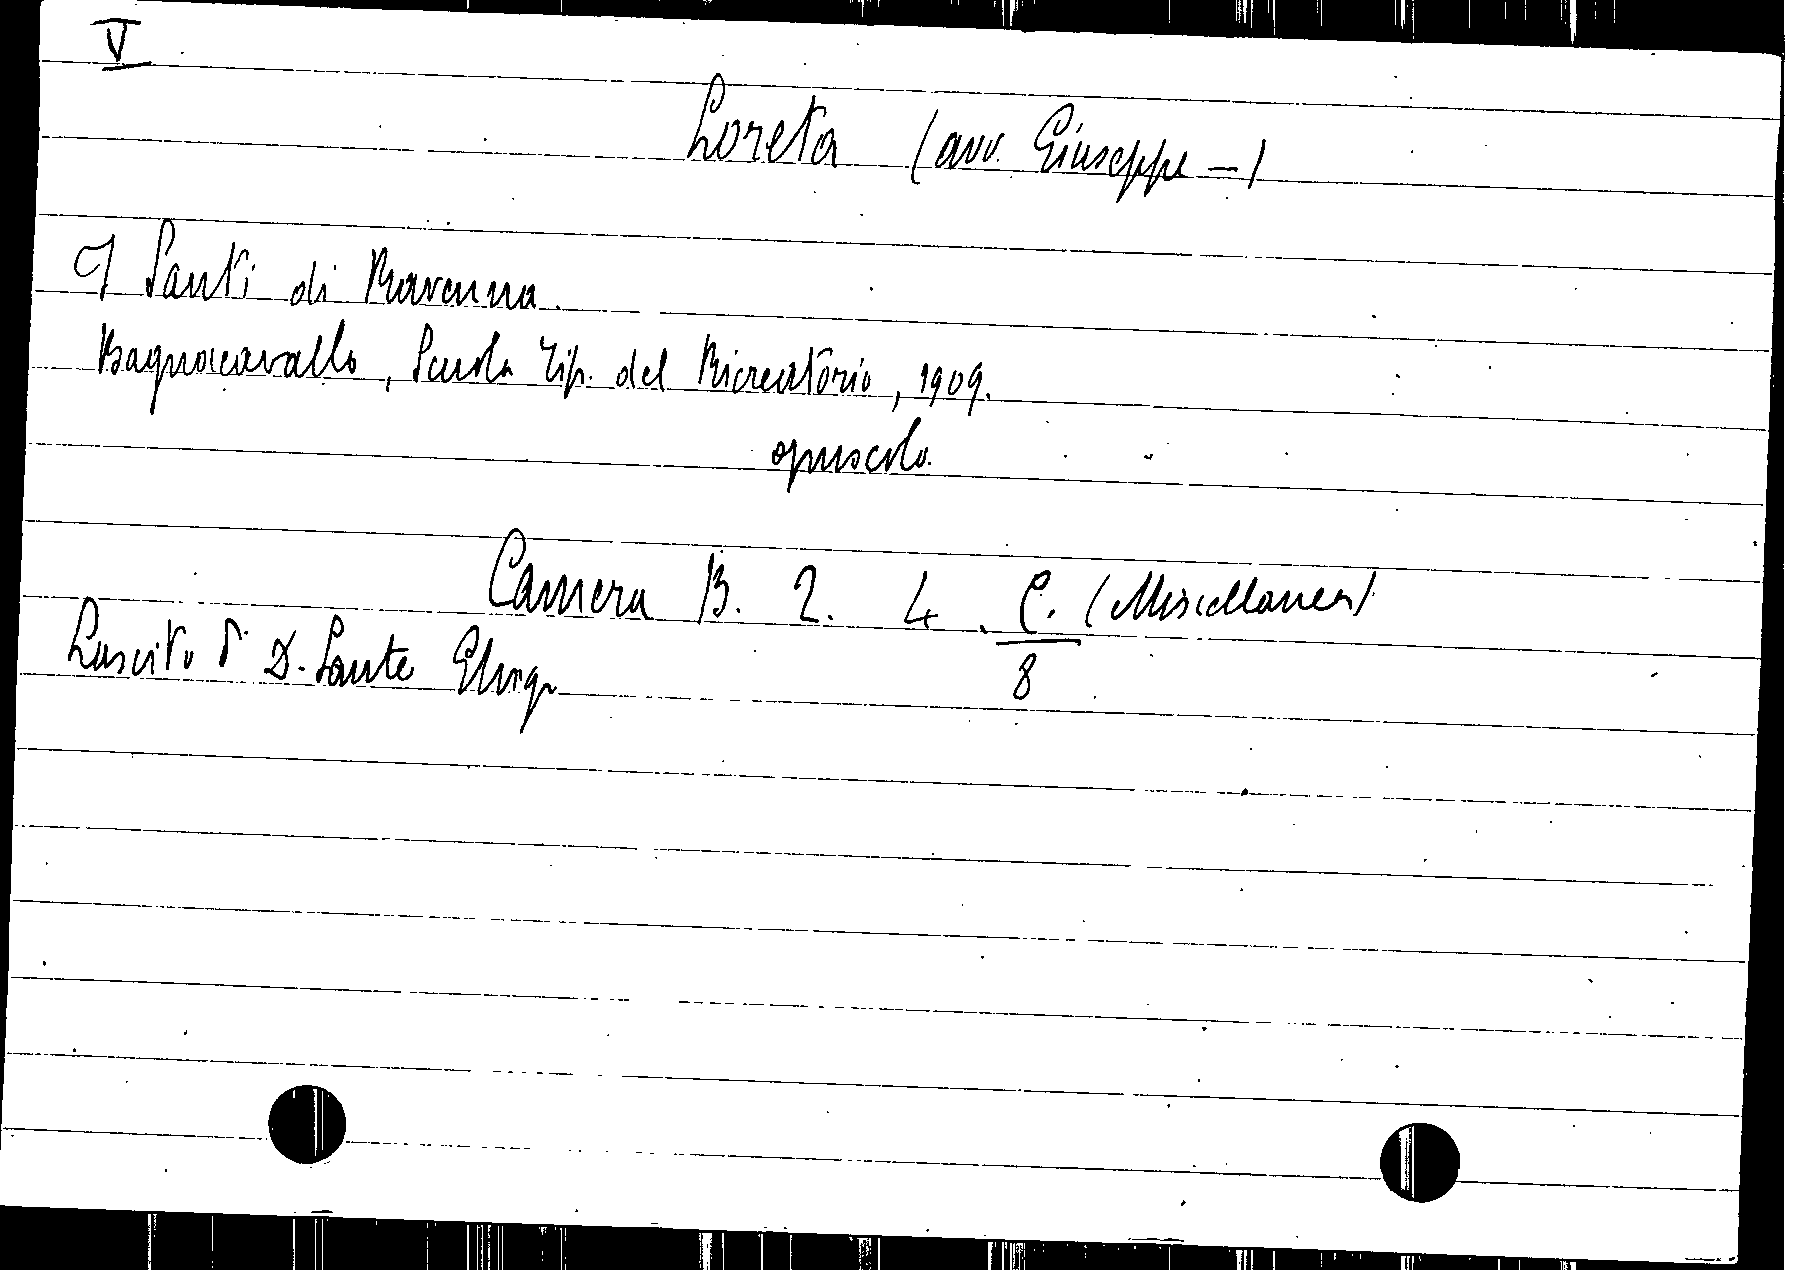 V
Loreta (avv. Giuseppe -)
I Santi di Ravenna.
Bagnacavallo, Scuola Tip. del Ricreatorio, 1909.
opuscolo.
Camera B. 2. 4. C. (Miscellanea)
8
Lascito D. Sante